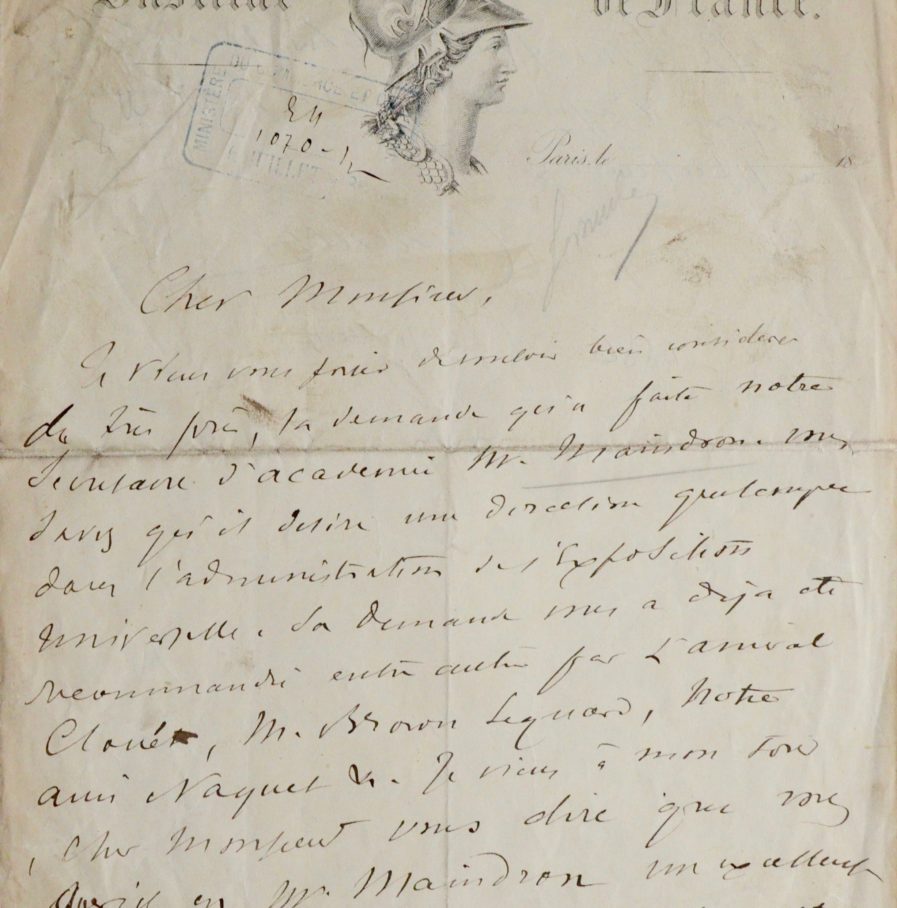 Institut de France.
MINISTÈRE DU COMMERCE ET
E4
1070-12
JUILLET
Paris, le 18
Cher Monsieur,
Je viens vous prier de vouloir bien considerer
de très près, la demande qu'a faite notre
Secretaire d'academie Mr. Maindron. vous
savez qu'il desire une direction quelconque
dans l'administration de l'Exposition
Universelle. Sa demande vous a deja été
recommandé entre autre par L'amiral
Clouét, M. Brown Sequard, Notre
ami Naquet &. Je viens à mon tour
, Cher Monsieur vous dire que vous
auriez en Mr Maindron un excellent